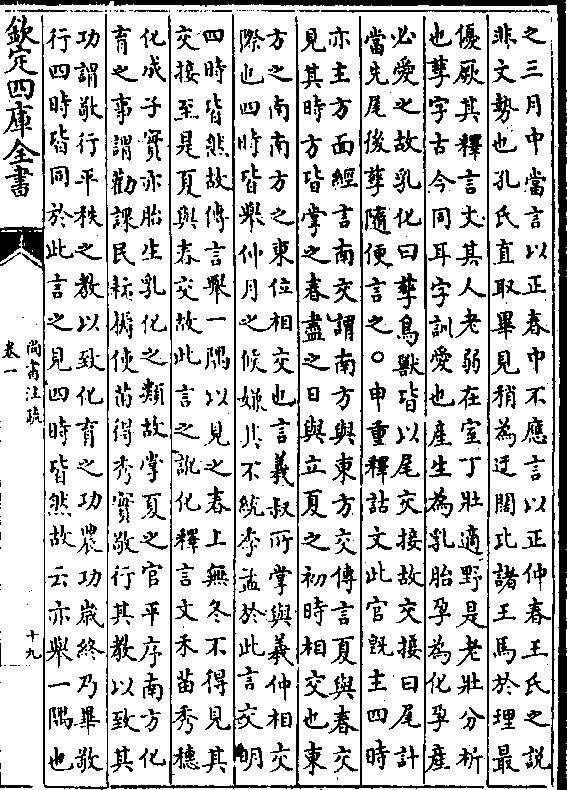 之三月中當言以正春中不應言以正仲春王氏之說
非文勢也孔氏直取畢見稍為迂闊比諸王馬於理最
優厥其釋言文其人老弱在室丁壯適野是老壯分析
也孳字古今同耳字訓愛也產生為乳胎孕為化孕產
必愛之故乳化曰孳鳥獸皆以尾交接故交接曰尾計
當先尾後孳隨便言之○申重釋詁文此官既主四時
亦主方面經言南交謂南方與東方交傳言夏與春交
見其時方皆掌之春盡之日與立夏之初時相交也東
方之南南方之東位相交也言義叔所掌與義仲相交
際也四時皆舉仲月之候嫌其不統季孟於此言交明
四時皆然故傳言舉一隅以見之春上無冬不得見其
交接至是夏與春交故此言之訛化釋言文禾苗秀穗
化成子實亦胎生乳化之類故掌夏之官平序南方化
育之事謂勸課民耘耨使苗得秀實敬行其教以致其
功謂敬行平秩之教以致化育之功農功歲終乃畢敬
行四時皆同於此言之見四時皆然故云亦舉一隅也
欽定四庫全書
尚書注疏
卷一
十九